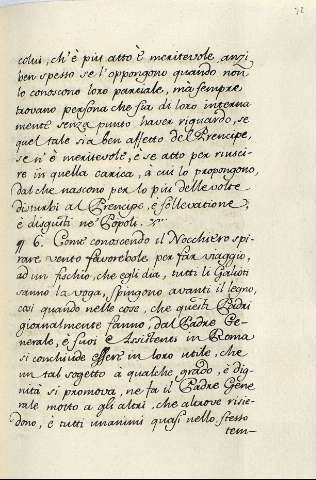 72
colui, ch'è più atto è meritevole, anzi
ben spesso se l'oppongono quando non
lo conoscono loro parziale, mà sempre
trovano persona che sia di loro interna
mente senza punto haver riguardo, se
quel tale sia ben affetto del Prencipe,
se n'è meritevole, è se atto per riusci-
re in quella carica, à cui lo propongono,
dal che nascono per lo più delle volte
disturbi al Prencipe, è sollevatione,
è disgusti ne' Popoli.
¶ 6. Come conoscendo il Nocchiero spi-
rare vento favorebole per far viaggio,
ad un fischio, che egli dia, tutti li Galioti
sanno la voga, spingono avanti il legno,
così quando nelle cose, che questi Padri
giornalmente fanno, dal Padre Ge-
nerale, è suoi Assistenti in Roma
si conchiude esser in loro utile, che
un tal sogetto à qualche grado, è dig-
nità si promova, ne fa il Padre Gene
rale motto a gli altri, che altrove risie-
dono, è tutti unanimi quasi nello stesso
tem-